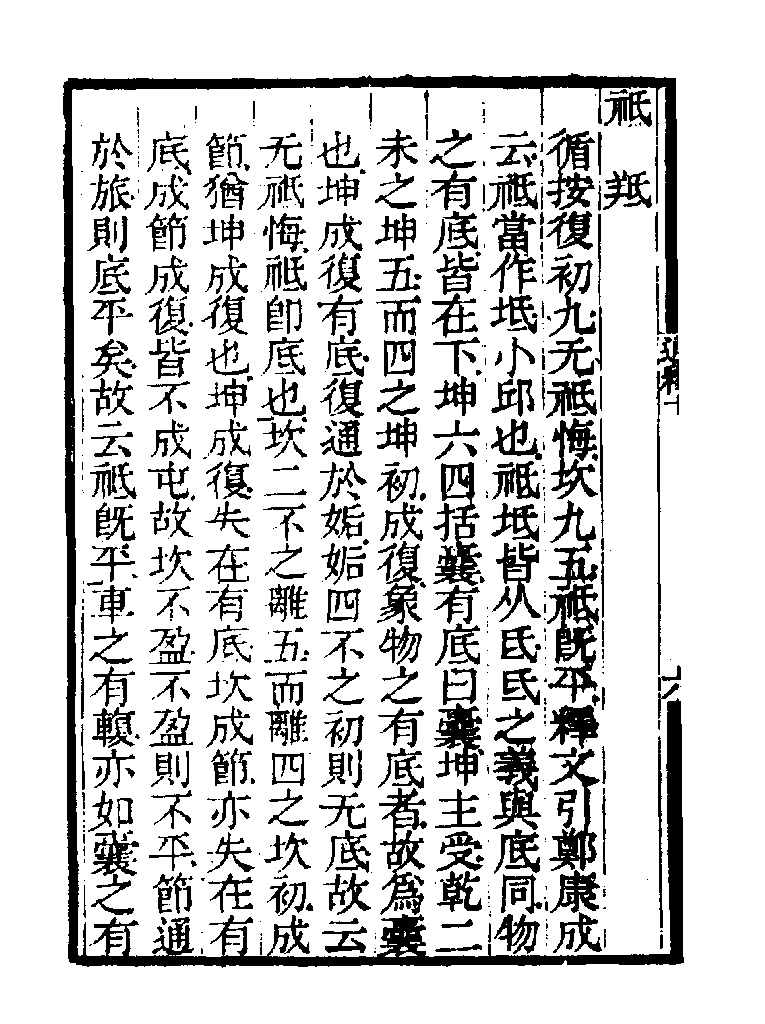 祗 羝
循按復初九无祗悔坎九五祗旣平釋文引鄭康成
云祗當作坻小邱也祗坻皆从氐氐之義與底同物
之有底皆在下坤六四括囊有底曰囊坤主受乾二
未之坤五而四之坤初成復象物之有底者故爲囊
也坤成復有底復通於姤姤四不之初則无底故云
无祗悔祗卽底也坎二不之離五而離四之坎初成
節猶坤成復也坤成復失在有底坎成節亦失在有
底成節成復皆不成屯故坎不盈不盈則不平節通
於旅則底平矣故云祗旣平車之有輹亦如囊之有